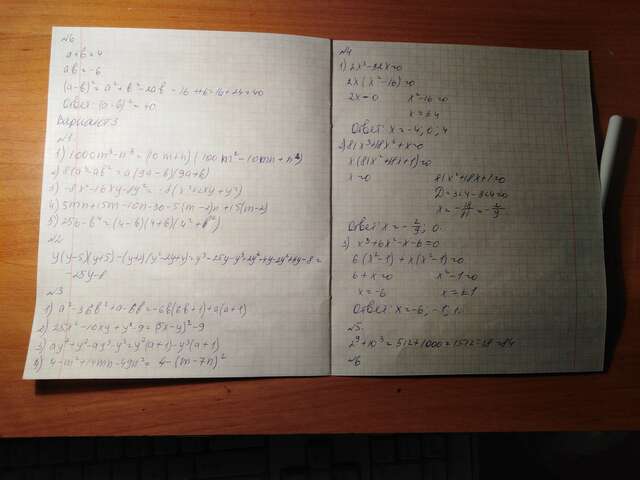 №6
a+b=4
ab=-6
(a-b)²=a²+b²-2ab=16+4·6=16+24=40
Ответ: (a-b)²=40
Вариант 3
№1
1) 1000m³-n³=(10m+n)(100m²-10mn+n²)
2) 81a³-ab²=a(9a-b)(9a+b)
3) -8x²-16xy-8y²=-8(x²+2xy+y²)
4) 5mn+15m-10n-30=5(m-2)n+15(m-2)
5) 256-b⁴=(4-b)(4+b)(4²+b²)
№2
y(y-5)(y+5)-(y+2)(y²-2y+4)=y³-25y-y³+2y²-4y-2y²+4y-8=
-25y-8
№3
1) a²-36b²+a-6b=-6b(6b+1)+a(a+1)
2) 25x²-10xy+y²-9=(5x-y)²-9
3) ay⁴+y⁴-ay³-y³=y⁴(a+1)-y³(a+1)
4) 4-m²+14mn-49n²=4-(m-7n)²
№4
1) 2x³-32x=0
2x(x²-16)=0
2x=0 x²-16=0
x=±4
Ответ: x=-4,0,4
2) 81x³+18x²+x=0
x(81x²+18x+1)=0
x=0 81x²+18x+1=0
D=324-324=0
x=-18/81=-2/9
Ответ: x=-2/9, 0.
3) x³+6x²-x-6=0
6(x²-1)+x(x²-1)=0
6+x=0 x²-1=0
x=-6 x=±1
Ответ: x=-6,-1,1.
№5.
2⁹+10³=512+1000=1512:18=84
№6